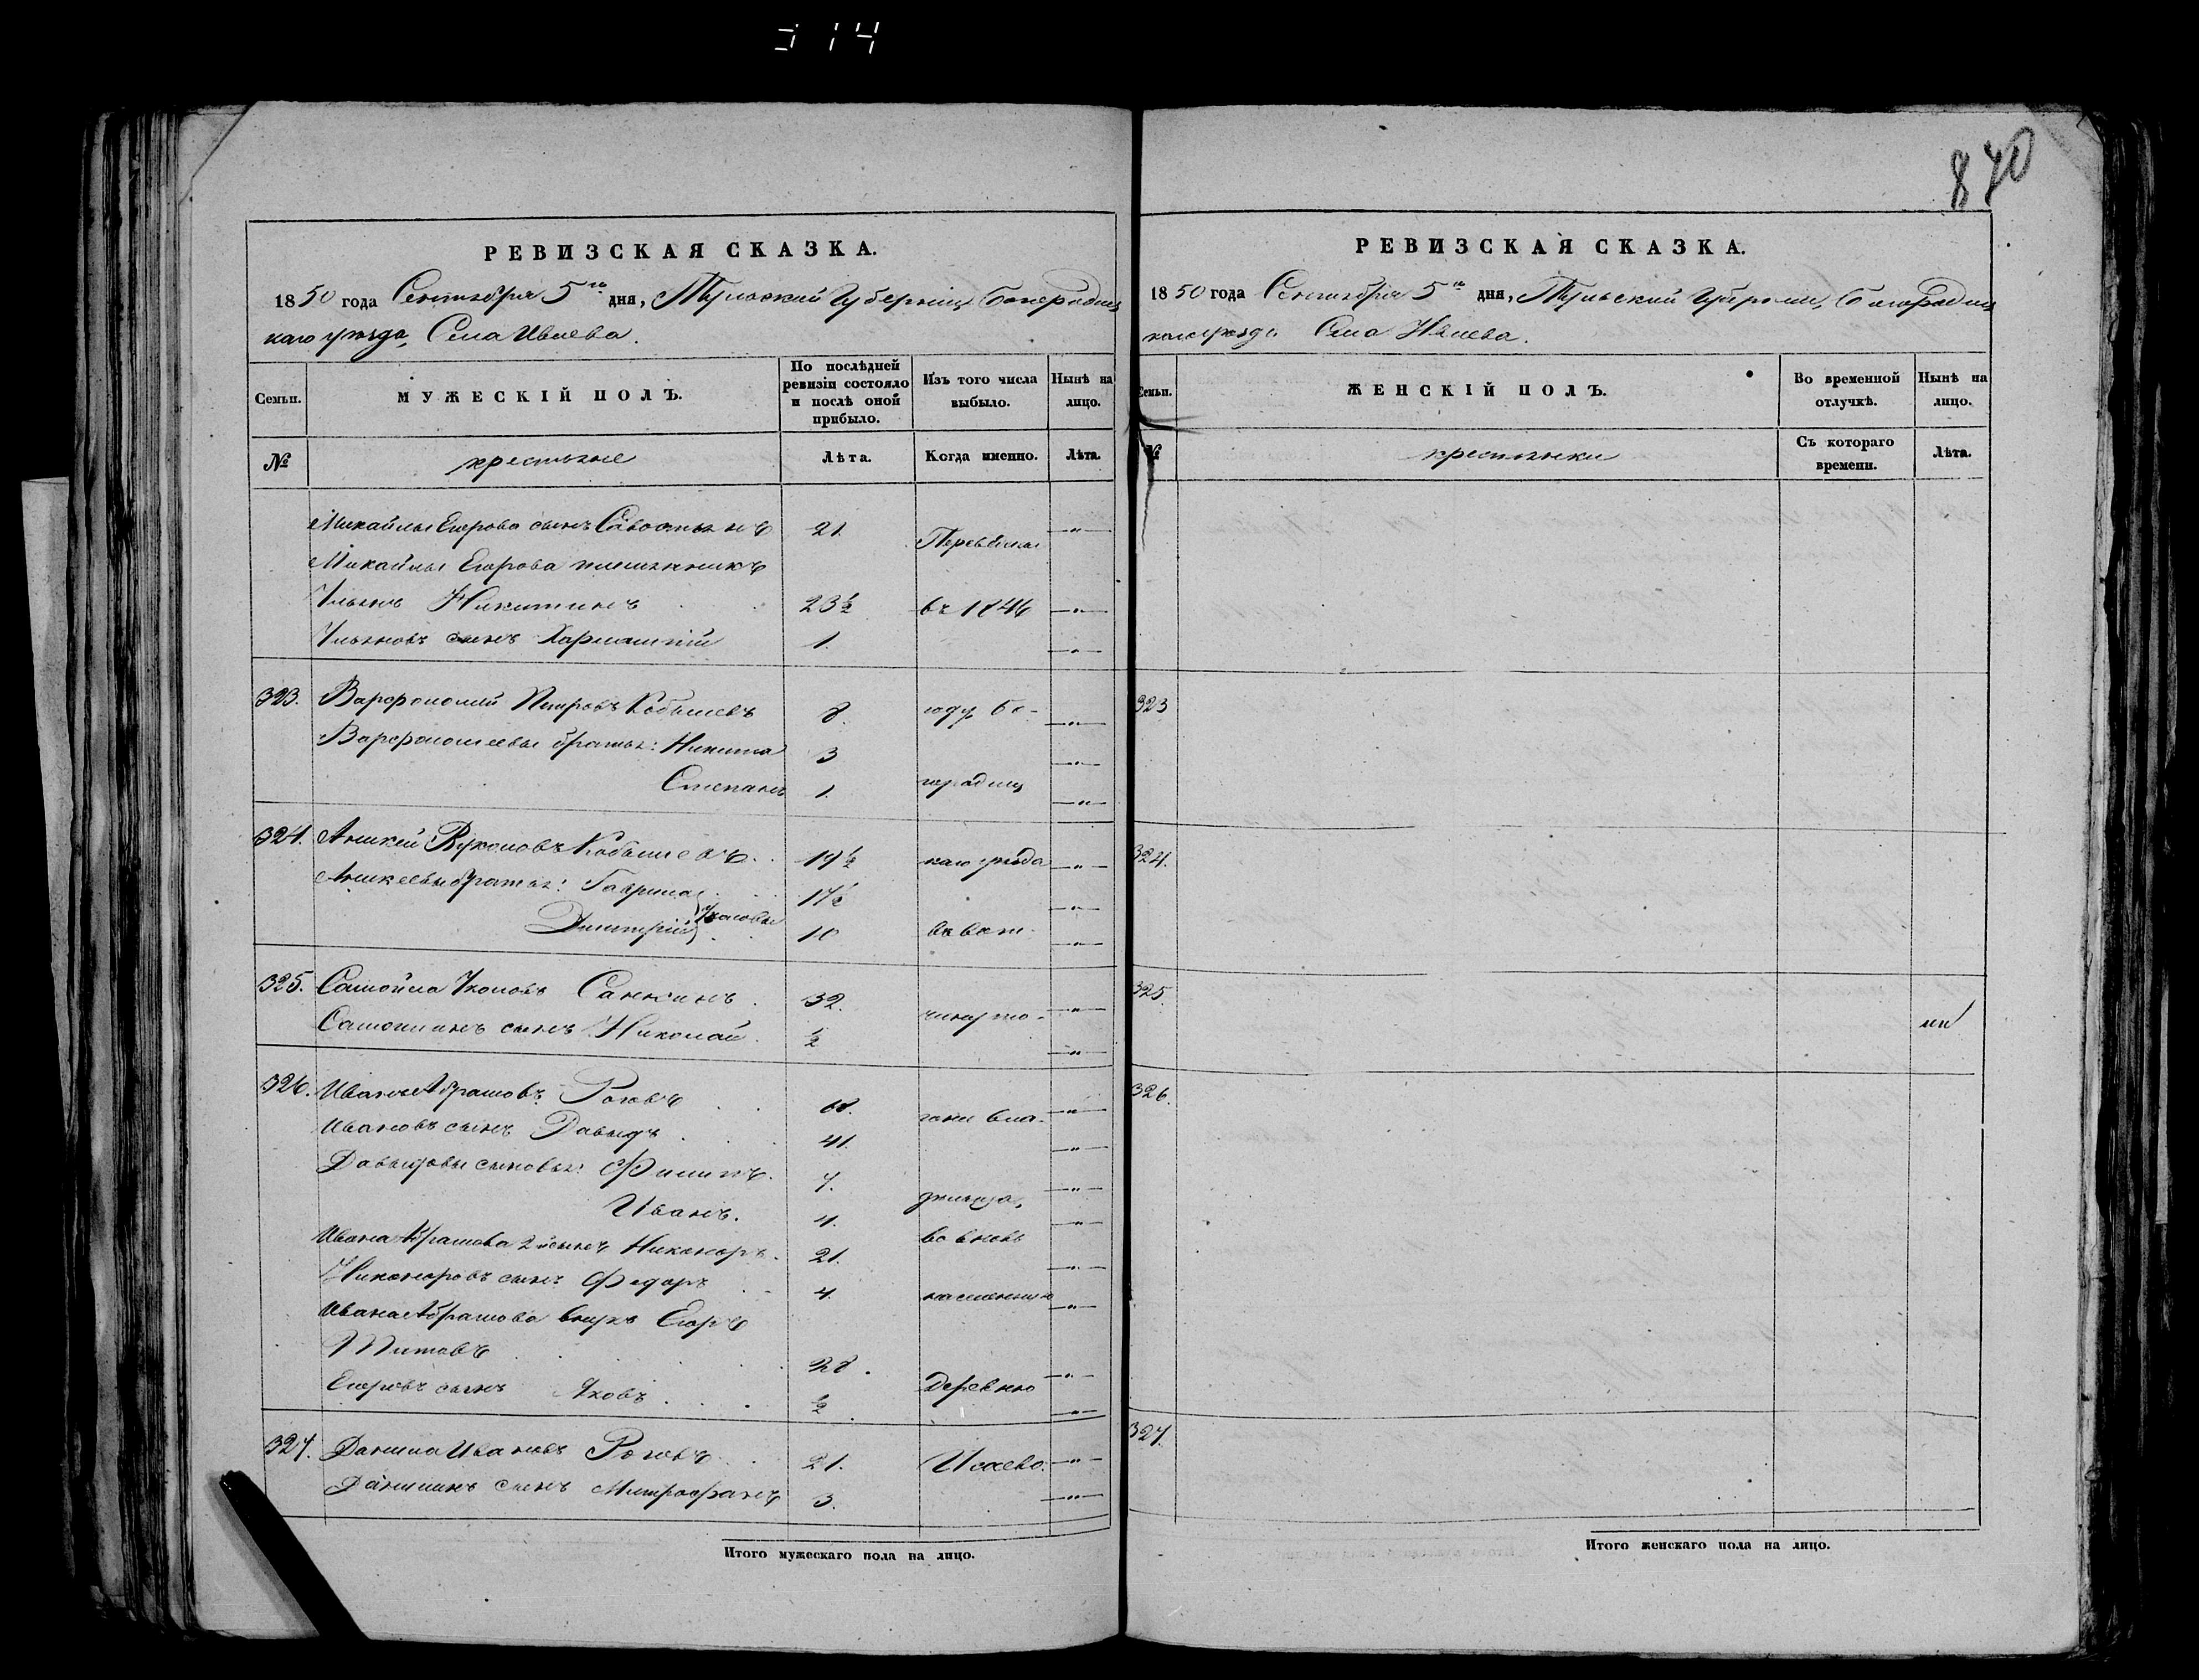 314
840
РЕВИЗСКАЯ СКАЗКА.
1850 года Сентября 5го дня, Тульской Губерніи, Богородиц
каго уѣзда, Села Ивлева.
Семьи.
МУЖЕСКІЙ ПОЛЪ.
По послѣдней ревизіи состояло и послѣ оной прибыло.
Изъ того числа выбыло.
Нынѣ на лицо.
№
крестьяне
Лѣта.
Когда именно.
Лѣта.
Михайлы Егорова сынъ 21. Переведены -"-
Михайлы Егорова племянникъ
Ульянъ Никитинъ 23½ въ 1846 -"-
Ульяновъ сынъ Харлампій 1. -"-
323. Варфоломей Петровъ Кобылевъ 8. году Бо- -"-
Варфоломеевы братья: Никита 3 -"-
Степанъ 1. городиц -"-
324. Аникей Вуколовъ Кобылевъ 19½ каго уѣзда -"-
Аникеевы братья: Гаврила 17½ -"-
Дмитрій 10 -"-
325. Самойла Санкинъ 32. чину то- -"-
Самойлинъ сынъ Николай ½ -"-
326. Иванъ Абрамовъ Роговъ 68. гоже вла- -"-
Ивановъ сынъ Давыдъ 41. -"-
Давыдовы сыновья: Филипъ 7. дѣльца, -"-
Иванъ. 4. -"-
Ивана Абрамова 2й сынъ Никаноръ 21. во вновь -"-
Никаноровъ сынъ Федоръ 4. населенную -"-
Ивана Абрамова внукъ Егоръ
Титовъ 28. -"-
Егоровъ сынъ Яковъ ½ деревню -"-
327. Данила Ивановъ Роговъ 21. Исаево. -"-
Данилинъ сынъ Митрофанъ 3. -"-
Итого мужескаго пола на лицо.
РЕВИЗСКАЯ СКАЗКА.
1850 года Сентября 5го дня, Тульской Губерніи, Богородиц
каго уѣзда Села Ивлева.
Семьи.
ЖЕНСКІЙ ПОЛЪ.
Во временной отлучкѣ.
Нынѣ на лицо.
№
крестьянки
Съ котораго времени.
Лѣта.
323
324.
325.
326.
327.
Итого женскаго пола на лицо.